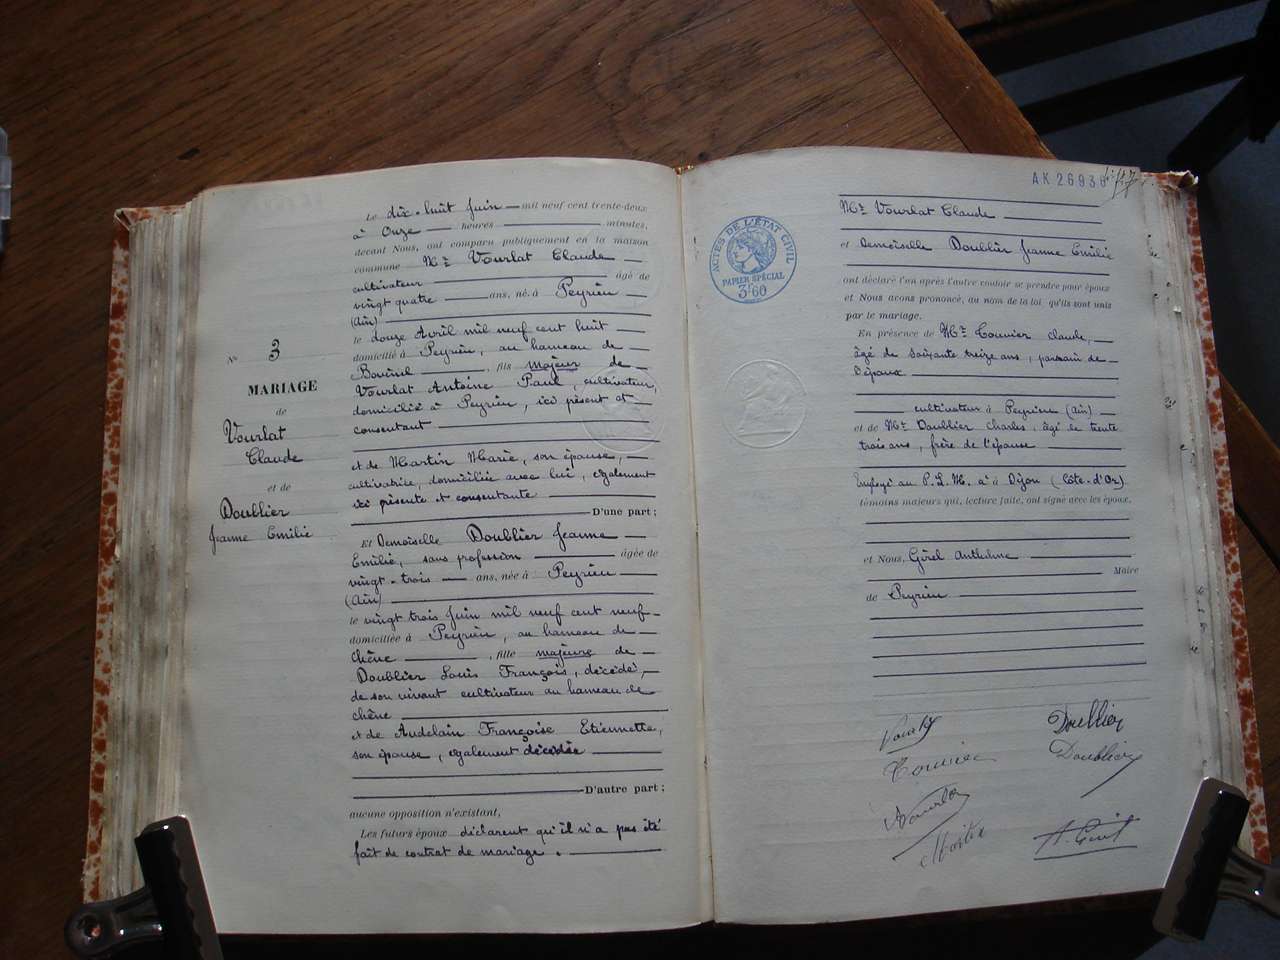 Nº 3
MARIAGE
de
Vourlat
Claude
et de
Doublier
Jeanne Emilie
Le dix-huit Juin mil neuf cent trente-deux
à Onze heures minutes,
devant Nous, ont comparu publiquement en la maison
commune Mr Vourlat Claude
cultivateur âgé de
vingt quatre ans, né à Peyrieu
(Ain)
le douze Avril mil neuf cent huit
domicilié à Peyrieu, au hameau de
fils majeur de
Vourlat Antoine Paul, cultivateur,
domicilié à Peyrieu, ici présent et
consentant
et de Martin Marie, son épouse,
cultivatrice, domiciliée avec lui, également
ici présente et consentante
D'une part ;
Et Demoiselle Doublier Jeanne
Emilie, sans profession âgée de
vingt-trois ans, née à Peyrieu
(Ain)
le vingt trois Juin mil neuf cent neuf
domiciliée à Peyrieu, au hameau de
chêne, fille majeure de
Doublier Louis François, décédé,
de son vivant cultivateur au hameau de
chêne
et de Audelain Françoise Etiennette,
son épouse, également décédée
D'autre part ;
aucune opposition n'existant,
Les futurs époux déclarent qu'il n'a pas été
fait de contrat de mariage.
AK 26936
ACTES DE L'ÉTAT CIVIL
PAPIER SPÉCIAL
3f60
Mr Vourlat Claude
et Demoiselle Doublier Jeanne Emilie
ont déclaré l'un après l'autre vouloir se prendre pour époux
et Nous avons prononcé, au nom de la loi, qu'ils sont unis
par le mariage.
En présence de Mr Touvier Claude,
âgé de soixante treize ans, parrain de
l'époux
cultivateur à Peyrieu (Ain)
et de Mr Doublier Charles, âgé de trente
trois ans, frère de l'épouse
Employé au P.L.M. à Dijon (Côte-d'Or)
témoins majeurs qui, lecture faite, ont signé avec les époux,
et Nous, Girel Anthelme
Maire
de Peyrieu
Doublier
Touvier
Doublier